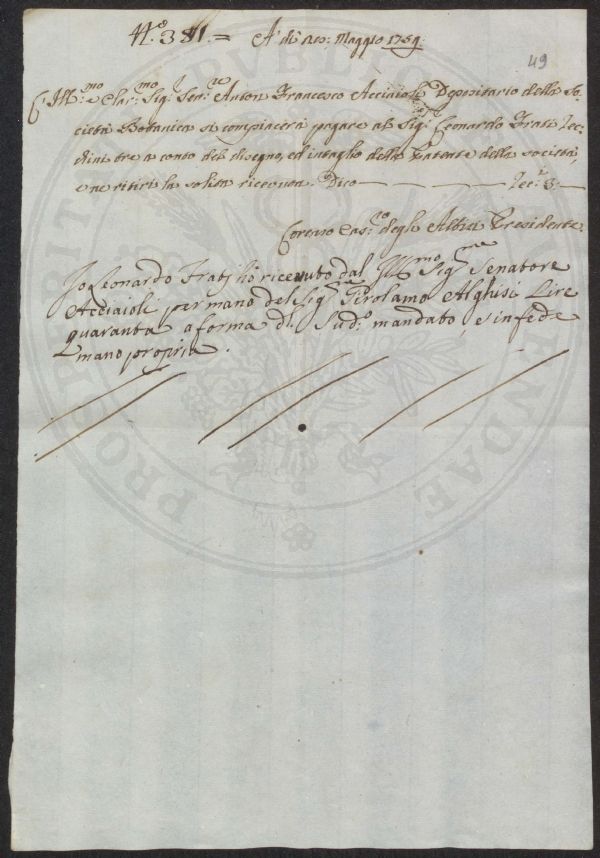 N.° 381. = A dì 20: Maggio 1759.
49
L'Ill:mo e Clar:mo Sig:re Sen:re Anton Francesco Acciaioli Depositario della So-
cietà Botanica si compiacerà pagare al Sig:r Leonardo Frati Zec-
chini tre a conto del disegno, ed intaglio della Patente della società,
e ne ritiri la solita ricevuta. Dico Zec:ni 3
Cas:ro degli Albizi Presidente
Io Leonardo Fratj hò ricevuto dal Ill:mo Sig:re Senatore
Acciaioli per mano del Sig:re Girolamo Alghisi Lire
quaranta a forma d:l Sud:o mandato, e in fede
mano propria.
PUBLICAE
PROSPERITATI